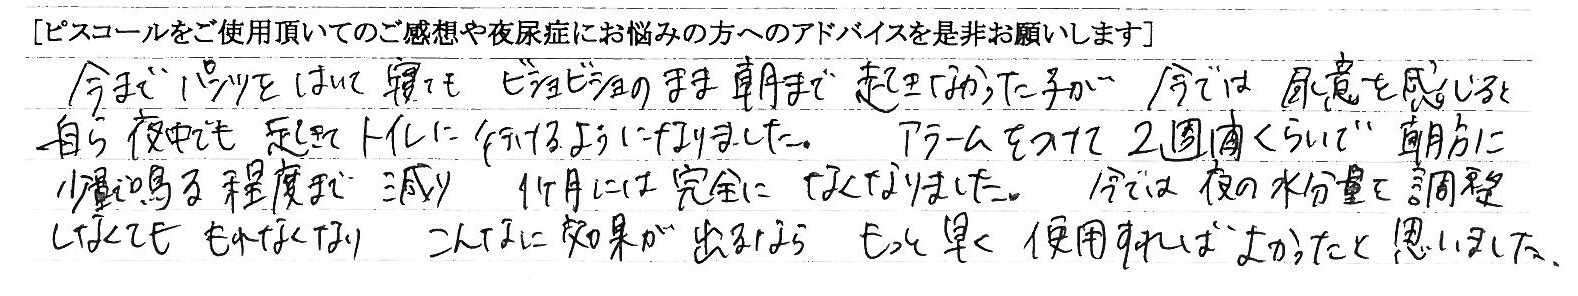 [ピスコールをご使用頂いてのご感想や夜尿症にお悩みの方へのアドバイスを是非お願いします]
今まで パンツを はいて 寝ても ビショビショの まま 朝まで 起きなかった子が 今では 尿意を感じると
自ら 夜中でも 起きて トイレに 行けるようになりました。 アラームをつけて 2週間くらいで 朝方に
少量で鳴る 程度まで 減り 1ケ月には 完全に なくなりました。 今では 夜の 水分量を 調整
しなくても もれなくなり こんなに 効果が 出るなら もっと 早く 使用すれば よかったと 思いました。